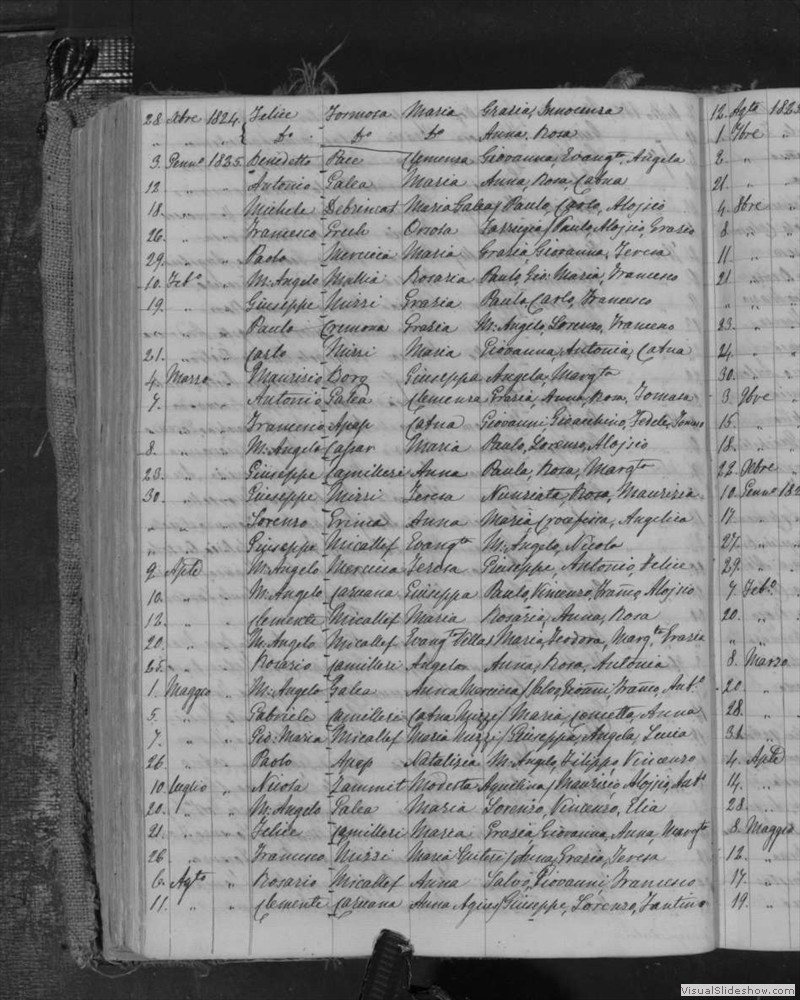 28. Xbre 1824. Felice Formosa Maria Grazia, Innocenza
" " " { Do Do Do Anna, Rosa
3. Genn.o 1825. Benedetto Pace Clemenza Giovanna, Evang.ta, Angela
12 " " Antonio Galea Maria Anna, Rosa, Catna
18. " " Michele Debrincat Maria Galea / Paulo, Carlo, Aloisio
26. " " Francesco Grech Orsola / Paulo, Aloisio, Grazio
29. " " Paolo Mercieca Maria Grazia, Giovanna, Teresa
10. Feb.o " M. Angelo Mallia Rosaria Paulo, Gio: Maria, Francesco
19. " " Giuseppe Mizzi Grazia Paulo, Carlo, Francesco
" " " Paulo Cremona Grazia M. Angelo, Lorenzo, Francesco
21. " " Carlo Mizzi Maria Giovanna, Antonia, Catna
4. Marzo " Maurizio Borg Giuseppa Angela, Marg.ta
7. " " Antonio Galea Clemenza Grazia, Anna, Rosa, Tomasa
" " " Francesco Apap Catna Giovanni, Gioachino, Fedele
8. " " M. Angelo Caspar Maria Paulo, Lorenzo, Aloisio
23. " " Giuseppe Camilleri Anna Paula, Rosa, Marg.ta
30. " " Giuseppe Mizzi Teresa Nunziata, Rosa, Maurizia
" " " Lorenzo Grima Anna Maria Crocefissa, Angelica
" " " Giuseppe Micallef Evang.ta M. Angelo, Nicola
9. Aple " M. Angelo Mercieca Teresa Giuseppe, Antonio, Felice
10. " " M. Angelo Caruana Giuseppa Paulo, Vincenzo, Aloisio
12. " " Clemente Micallef Maria Rosaria, Anna, Rosa
20. " " M. Angelo Micallef Evang.ta Vella / Maria, Teodora, Marg.ta Grazia
25. " " Rosario Camilleri Angela Anna, Rosa, Antonia
1. Maggio " M. Angelo Galea Anna Mercieca / Ant.o
5. " " Gabriele Camilleri Catna Mizzi / Maria, Concetta, Anna
7. " " Gio: Maria Micallef Maria Mizzi / Giuseppa, Angela, Lucia
26. " " Paolo Apap Natalizia M. Angelo, Filippo Vincenzo
10. Luglio " Nicola Zammit Modesta Aquilina / Maurizio, Aloisio, Ant.o
20. " " M. Angelo Galea Maria Lorenzo, Vincenzo, Elia
21. " " Felice Camilleri Maria Grazia Giovanna, Anna, Marg.ta
26 " " Francesco Mizzi Maria Spiteri / Anna, Grazia, Teresa
6. Agto " Rosario Micallef Anna Salvo, Giovanni, Francesco
11. " " Clemente Caruana Anna Agius / Giuseppe, Lorenzo, Santino
12. Agto 1825
1. 7bre "
2. "
21. "
4. 8bre "
8 "
11. "
21. "
" "
23. "
24. "
30. "
3. 9bre "
15. "
18. "
22. Xbre "
10. Genn.o 182
17. "
27. "
29. "
7. Feb.o "
20. "
" "
8. Marzo
20 "
28. "
31. "
4. Aple
14. "
28. "
8. Maggio
12. "
17. "
19. "
VisualSlideshow.com